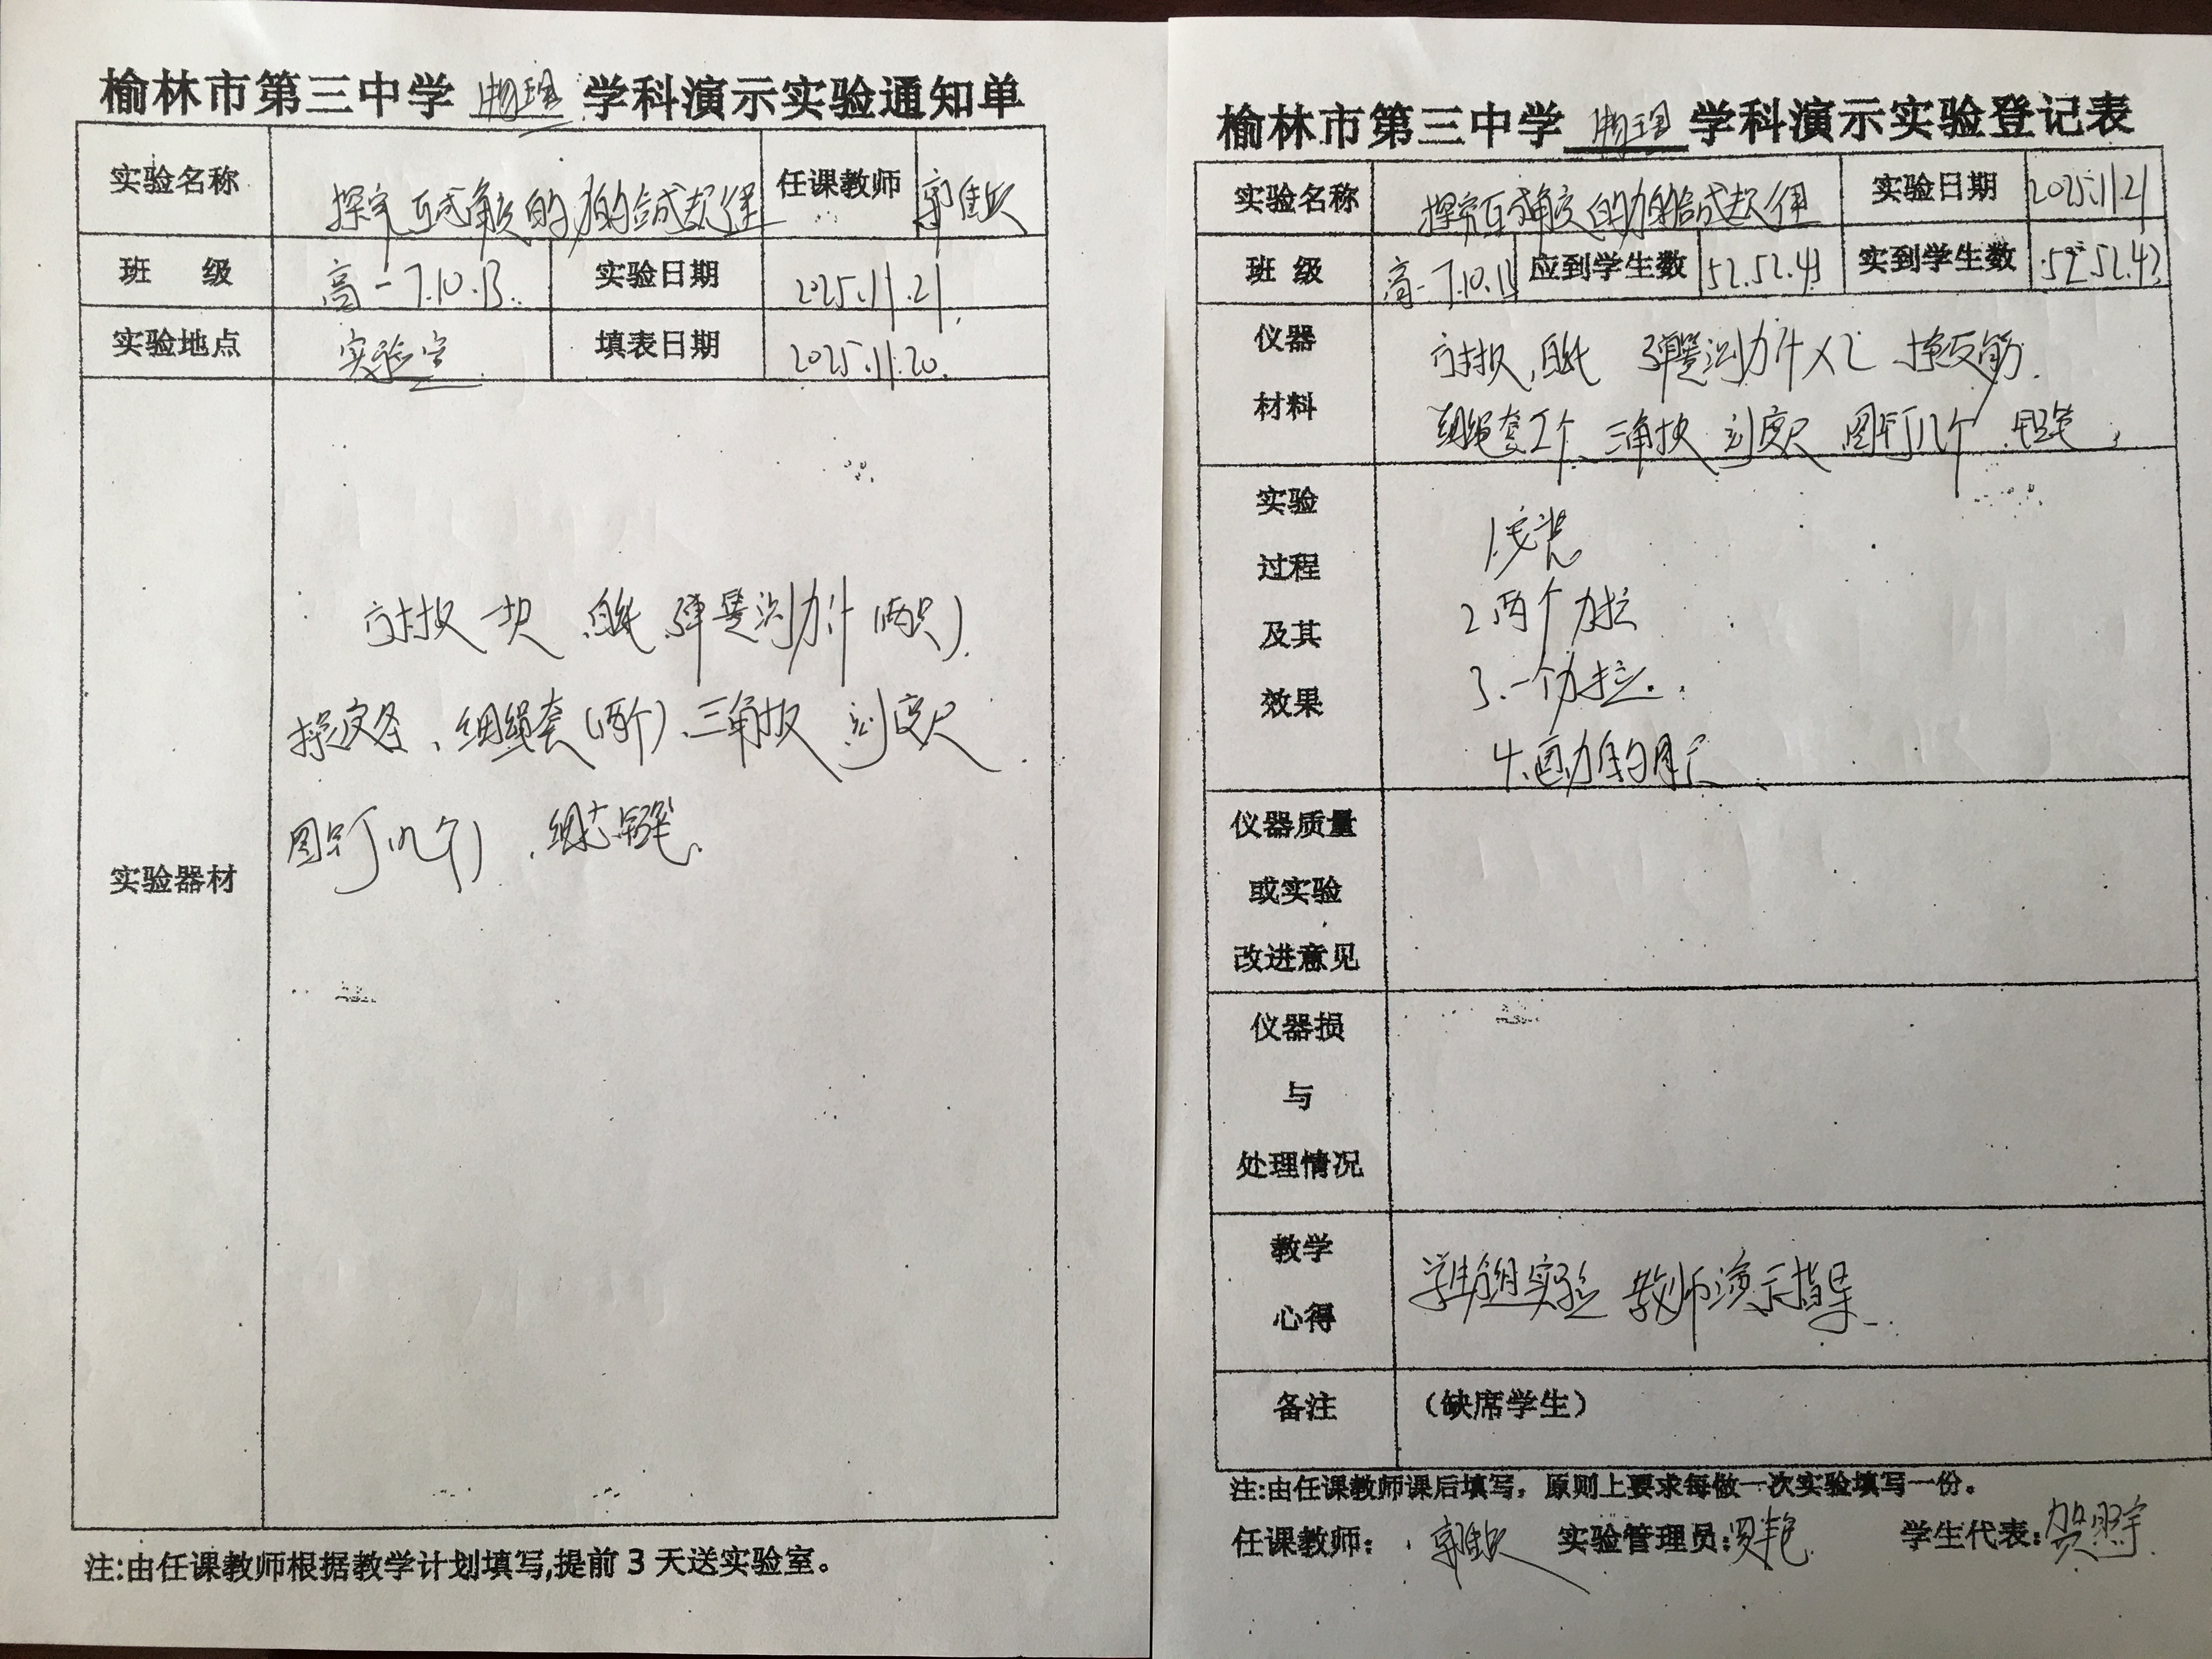 榆林市第三中学 物理 学科演示实验通知单
实验名称 探究互成角度的力的合成规律 任课教师
班 级 高一7.10.13. 实验日期 2025.11.21.
实验地点 实验室 填表日期 2025.11.20.
实验器材
方木板一块、白纸、弹簧测力计(两只).
橡皮条、细绳套(两个)、三角板 刻度尺
图钉(几个)、细芯铅笔.
注:由任课教师根据教学计划填写,提前 3 天送实验室。
榆林市第三中学 物理 学科演示实验登记表
实验名称 探究互成角度的力的合成规律 实验日期 2025.11.21
班 级 高一7.10.13 应到学生数 52.52.43 实到学生数 52.52.43
仪器
材料
方木板,白纸 弹簧测力计×2 橡皮筋.
细绳套2个 三角板 刻度尺 图钉几个 铅笔
实验
过程
及其
效果
1.安装
2.两个力拉
3.一个力拉.
4.画力的图示
仪器质量
或实验
改进意见
仪器损
与
处理情况
教学
心得
学生分组实验 教师演示指导.
备注 (缺席学生)
注:由任课教师课后填写，原则上要求每做一次实验填写一份。
任课教师: 实验管理员: 学生代表: